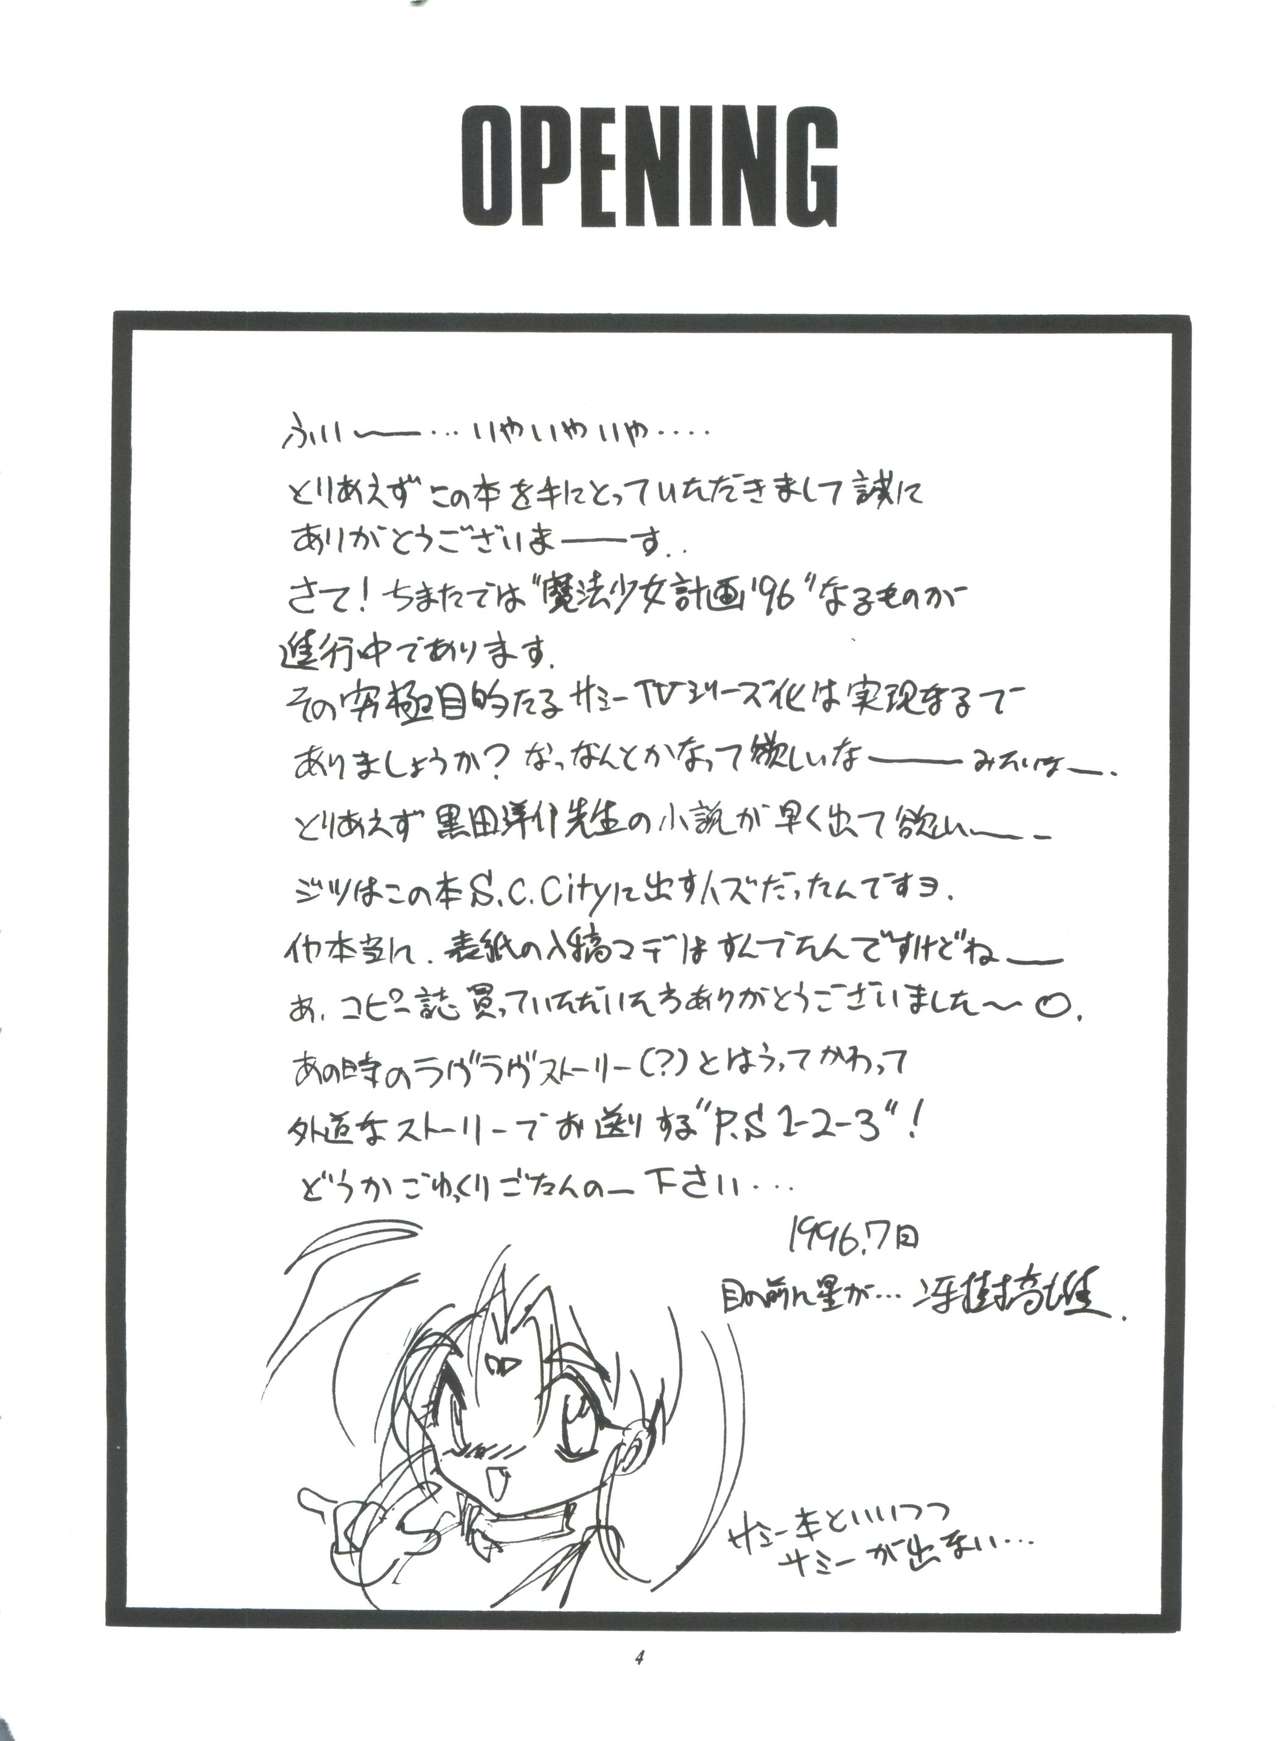 OPENING
ふいー…いやいやいや‥‥
とりあえずこの本を手にとっていただきまして誠に
ありがとうございまーーす..
さて！ちまたでは“魔法少女計画'96”なるものが
進行中であります.
その究極目的たるサミーTVシリーズ化は実現するで
ありましょうか？なっなんとかなって欲しいなーーみたいなー.
とりあえず黒田洋介先生の小説が早く出て欲しいーー
ジツはこの本S.C.Cityに出すハズだったんですヨ.
イヤ本当に.表紙の入稿マデはすんでたんですけどねー
あ,コピー誌買っていただいた方ありがとうございました〜○.
あの時のラヴラヴストーリー(?)とはうってかわって
外道なストーリーでお送りする“P.S 1-2-3”!
どうかごゆっくりごたんのー下さい…
1996.7月
目の前に星が…冴樹高雄.
サミー本といいつつ
サミーが出ない…
4